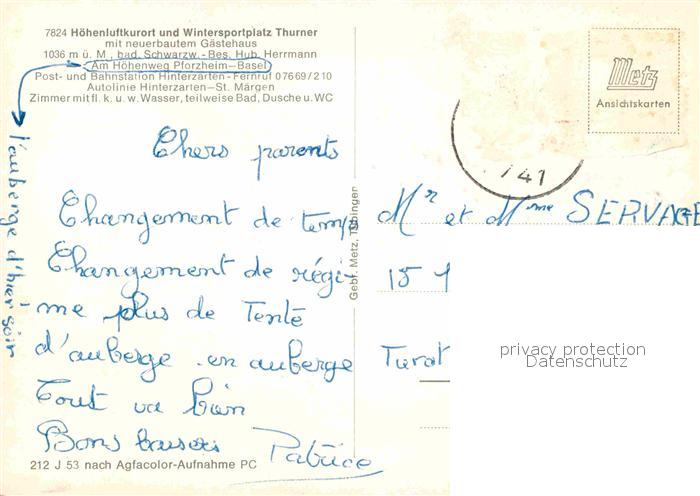 7824 Höhenluftkurort und Wintersportplatz Thurner
mit neuerbautem Gästehaus
1036 m ü. M., bad. Schwarzw. - Bes. Hub. Herrmann
Am Höhenweg Pforzheim—Basel
Post- und Bahnstation Hinterzarten - Fernruf 07669/210
Autolinie Hinterzarten—St. Märgen
Zimmer mit fl. k. u. w. Wasser, teilweise Bad, Dusche u. WC
l'auberge d'hier soir
Chers parents
Changement de temps
Changement de régi-
me plus de Tente
d'auberge en auberge
Tout va bien
Bons baisers Patrice
212 J 53 nach Agfacolor-Aufnahme PC
Gebr. Metz, Tübingen
Metz
Ansichtskarten
741
Mr et Mme SERVAGE
15 1
Turat
privacy protection
Datenschutz